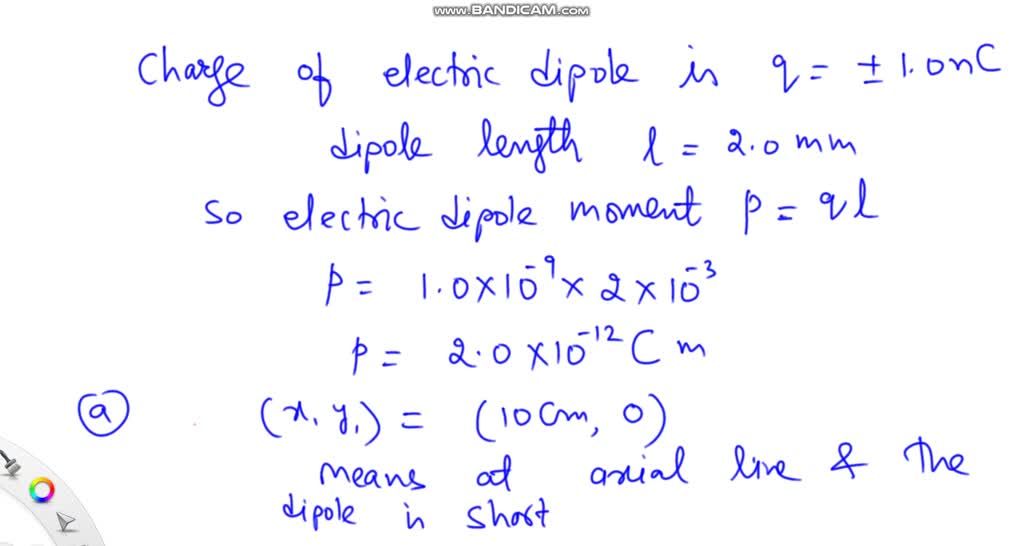 www.BANDICAM.com
Charge of electric dipole is q = ± 1.0nC
dipole length l = 2.0 mm
so electric dipole moment p = ql
p = 1.0×10⁻⁹ × 2 × 10⁻³
p = 2.0 ×10⁻¹² C m
(a) (x, y,) = (10cm, 0)
means at axial line & the
dipole is short